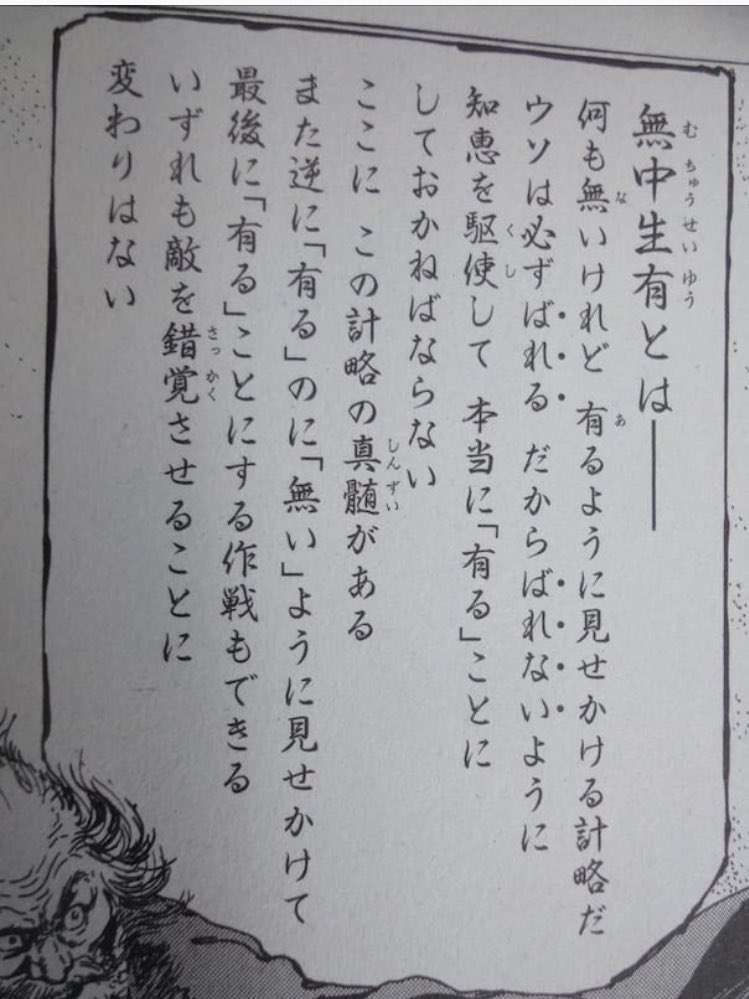 無中生有とは――
何も無いけれど 有るように見せかける計略だ
ウソは必ずばれる だからばれないように
知恵を駆使して 本当に「有る」ことに
しておかねばならない
ここに この計略の真髄がある
また逆に「有る」のに「無い」ように見せかけて
最後に「有る」ことにする作戦もできる
いずれも敵を錯覚させることに
変わりはない